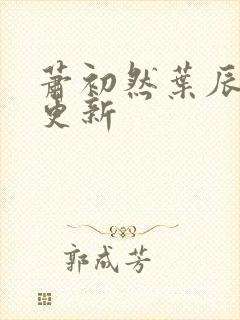 萧初然葉辰
更新
郭成芳